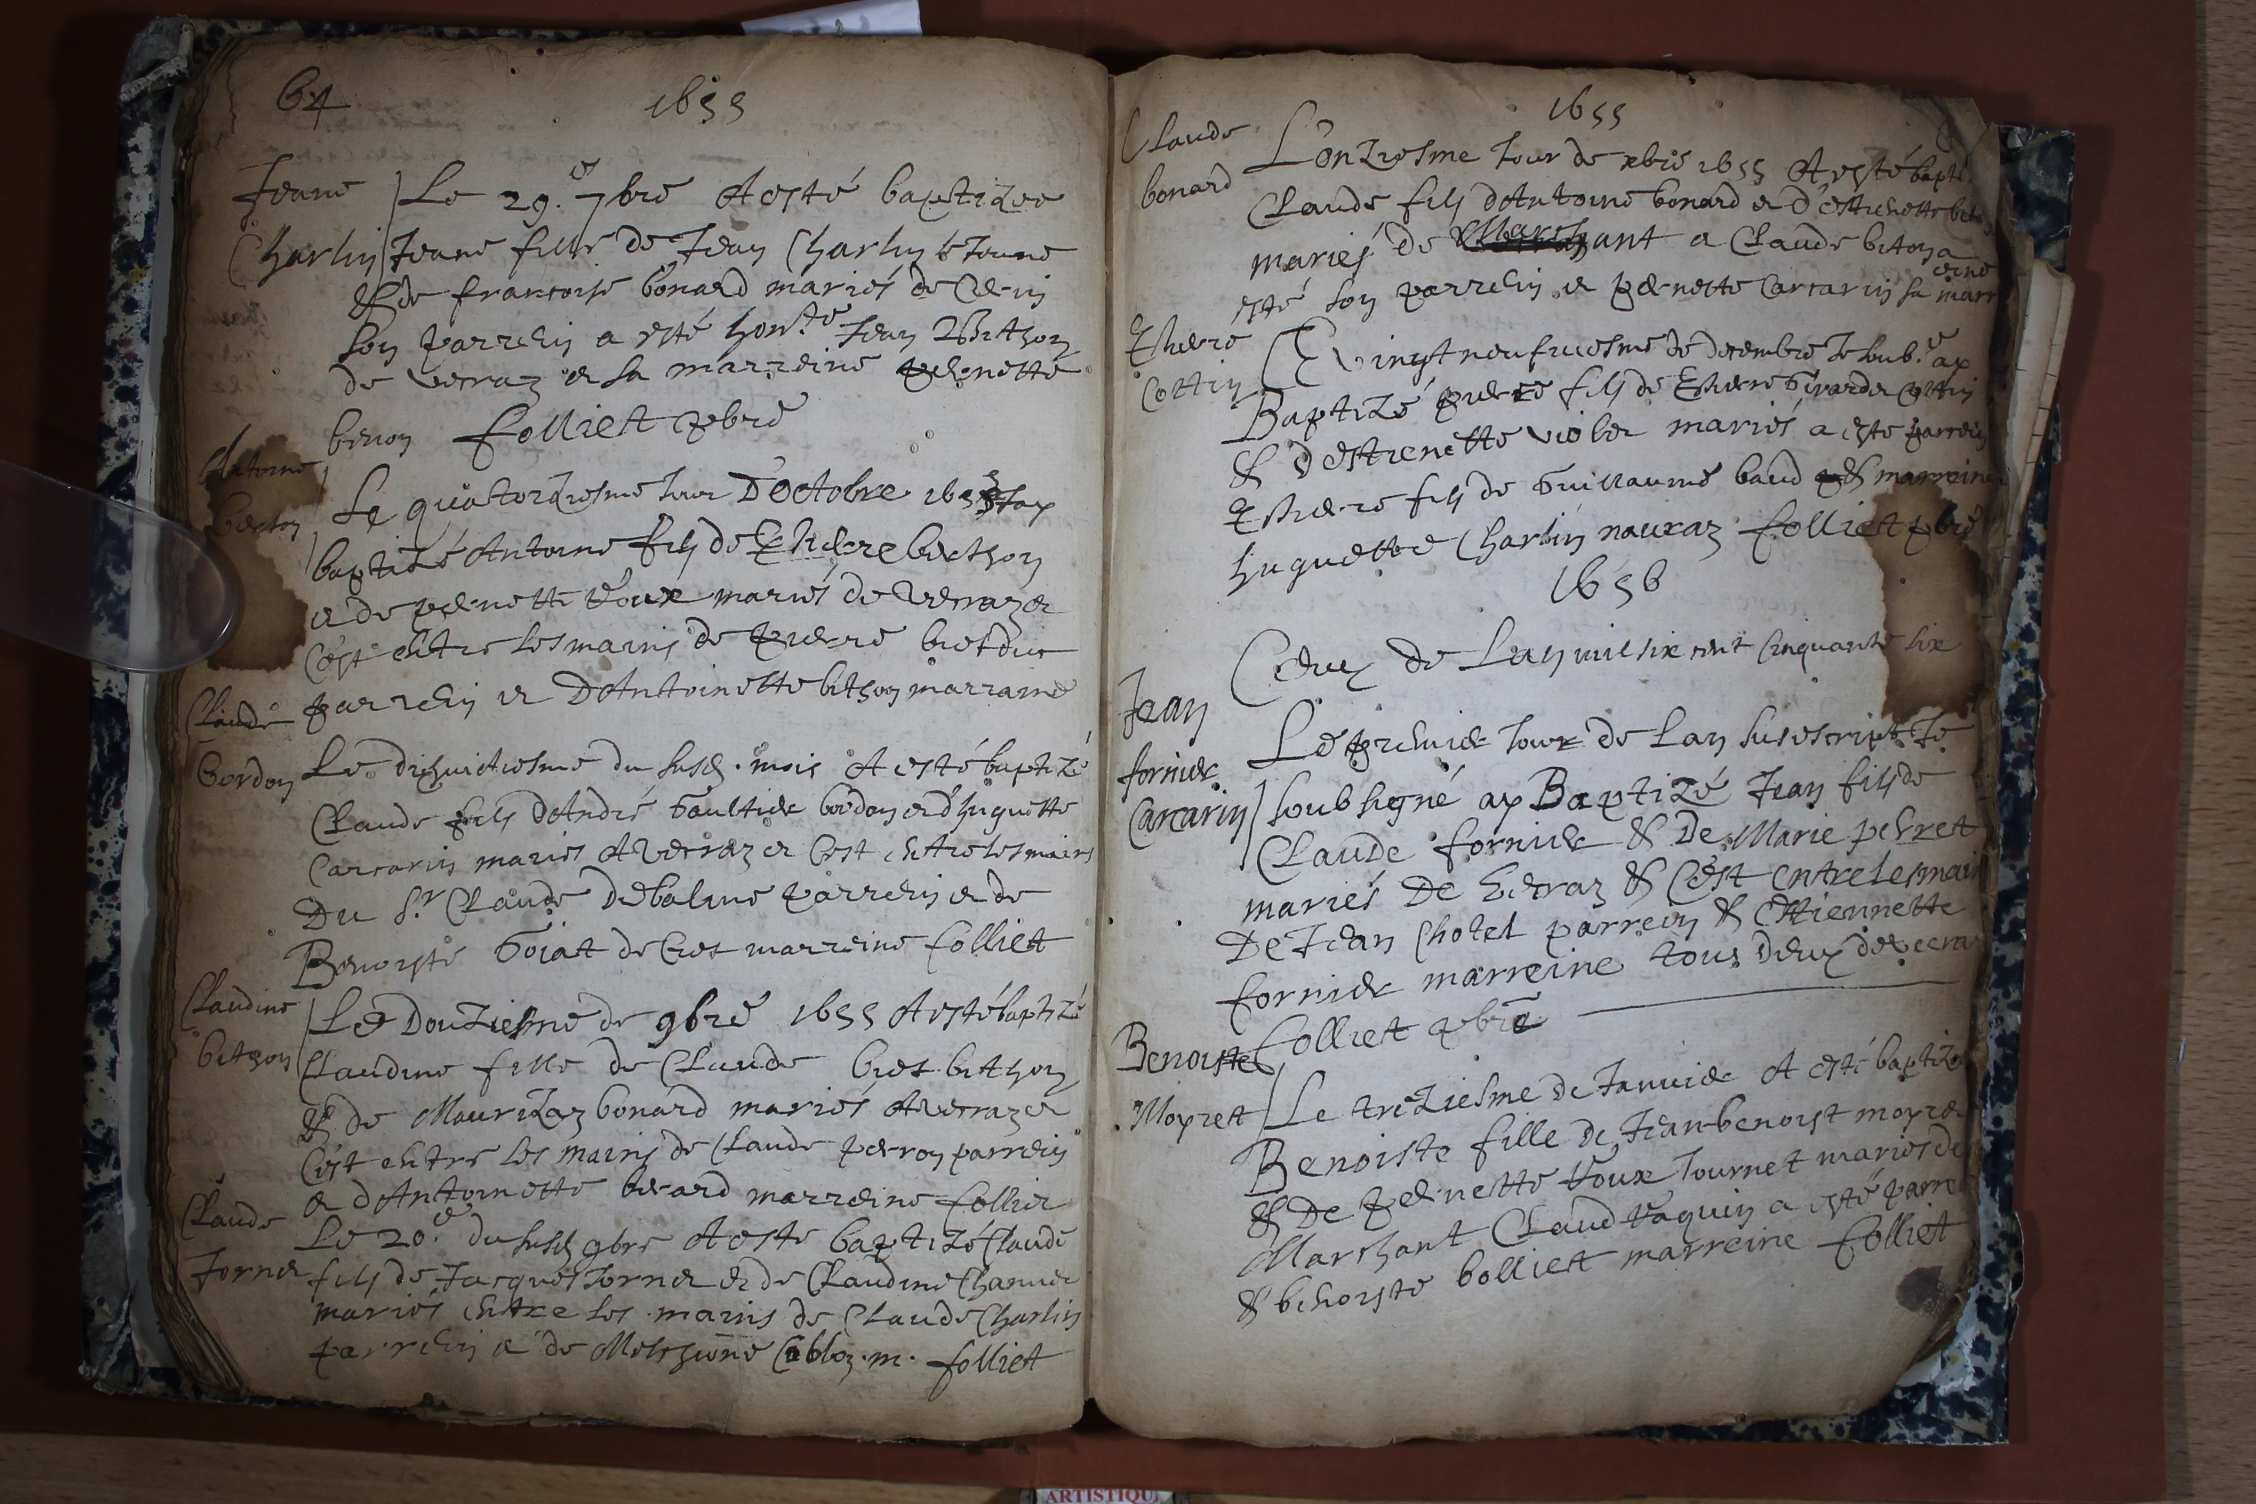 64
1655
Jeanne
Charlin
Le 29.e 7bre A esté baptizee
Jeanne fille de Jean Charlin le Jeune
& de francoise bonard mariés de
son parrein a esté hon.te Jean Bithon
de veraz et sa marreine pernette
benon folliet pbre
Antoine
betton
Le quatorziesme Jour D'Octobre 1655 J'ay
baptizé Antoine fils de Estienne
et de pernette mariés de veraz et
C'est entre les mains de pierre
parrein et D'Antoinette bithon marraine
Claude
bordon
Le dixhuictiesme du susd. mois A esté baptizé
Claude fils d'André Gaultier bordon et d'huguette
Carcarin mariés A veraz et C'est entre les mains
Du S.r Claude Debalme parrein et de
Benoiste Gojat de marreine folliet
Claudine
bithon
Le Douziesme de 9bre 1655 A esté baptizé
Claudine fille de Claude bithon
& de Maurizaz bonard mariés A veraz et
C'est entre les mains de Claude perron parrein
et d'Antoinette marreine folliet
Claude
Jornet
Le 20.e du susd 9bre A esté baptizé Claude
fils de Jacques Jornet et de Claudine
mariés entre les mains de Claude Charlin
parrein et de m. folliet
1655
Claude
bonard
L'onziesme Jour de xbre 1655 A esté bapt
Claude fils d'Antoine bonard et d'estienette
mariés de Marchant et Claude bithon a
esté son parrein et pernette Carcarin sa marreine
Cottin
vingt neufviesme de decembre Je soub.e ay
Baptizé pierre fils de Cottin
& d'estienette mariés a esté parrein
fils de Guillaume baud & marreine
huguette Charlin folliet pbre
1656
Ceux de L'an mil six cent Cinquante six
Jean
fornier
Carcarin
Le premier Jour de L'an susescript Je
soubsigné ay Baptizé Jean fils de
Claude fornier & De Marie perret
mariés De veraz & C'est entre les mains
De Jean Chotel parrein & Estiennette
fornier marreine tous deux de veraz
folliet pbre
Benoiste
Moyret
Le treziesme de Januier A esté baptizee
Benoiste fille de Jean-benoist moyret
& De pernette Journet mariés de
Marchant Claud a esté parrein
& benoiste bolliet marreine folliet
ARTISTIQU